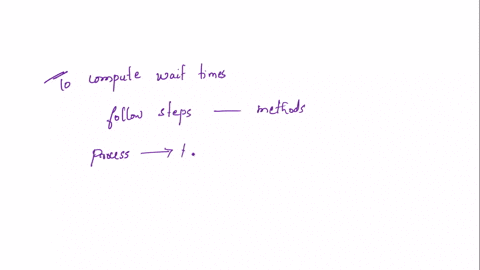 To compute wait times
follow steps — methods
process → t.